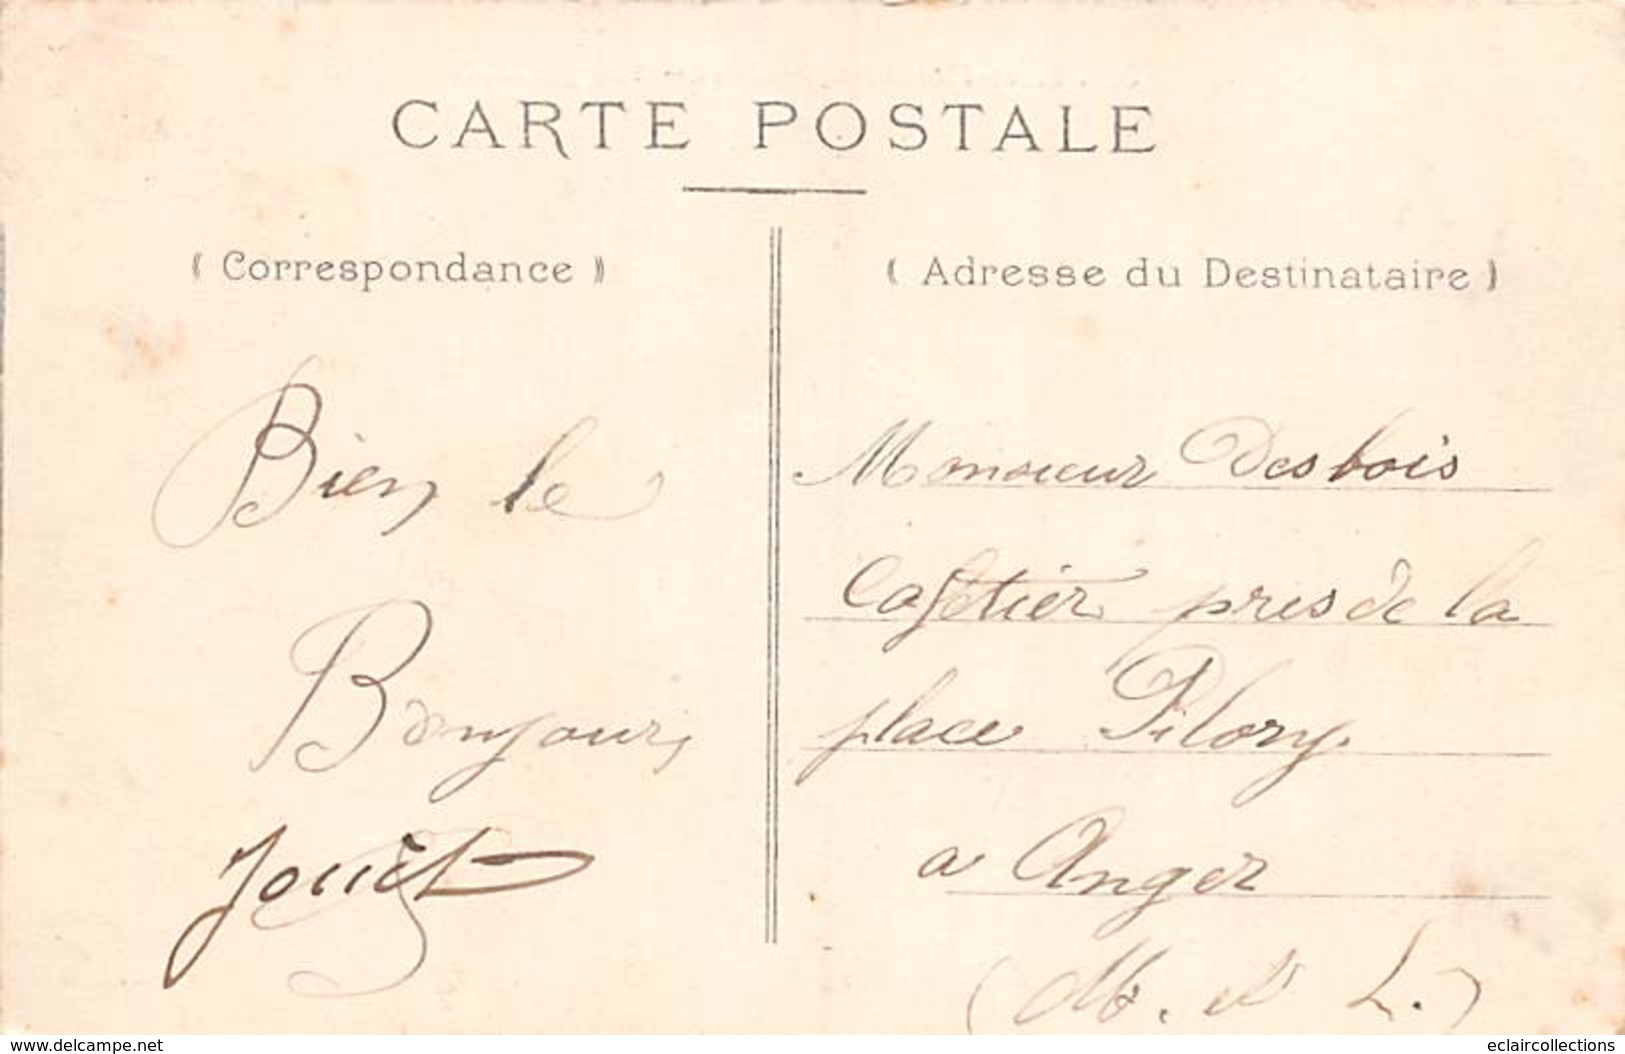 CARTE POSTALE
( Correspondance )
Bien le
Bonjour,
Jouet
( Adresse du Destinataire )
Monsieur Desbois
Cafetier pres de la
place Pilory.
a Anger
(M. et L.)
www.delcampe.net
eclaircollections